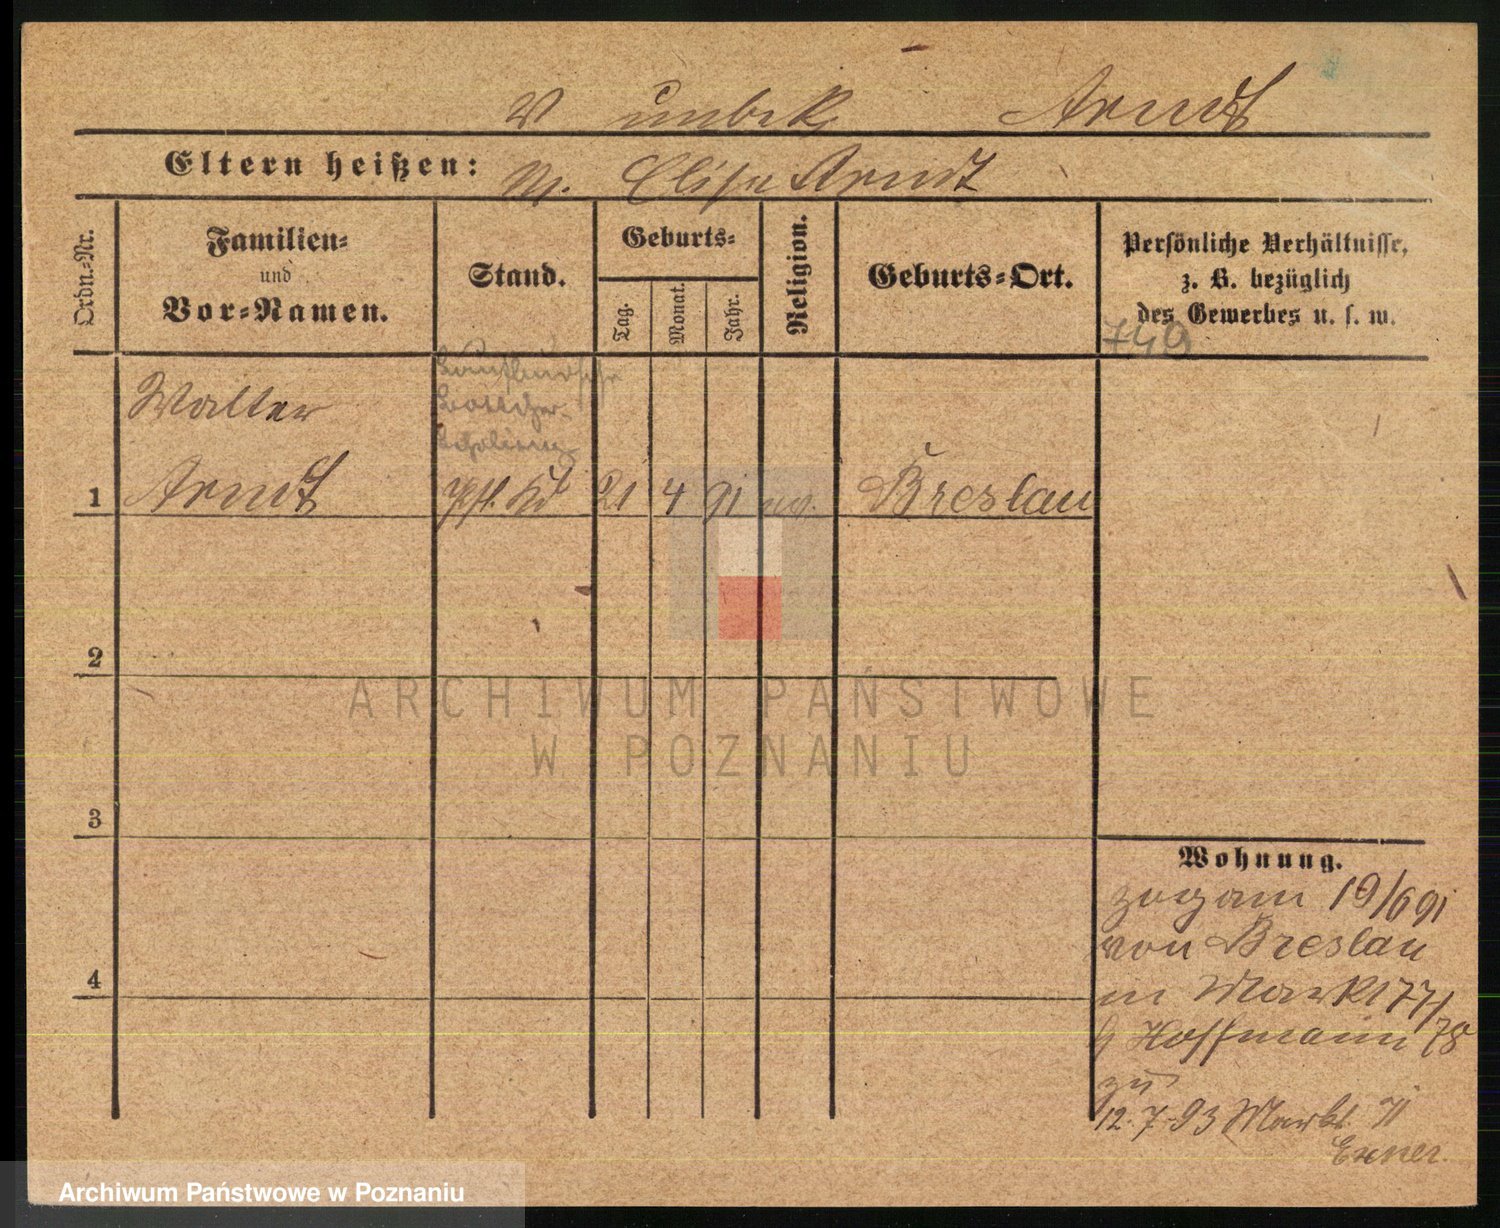 V unbek. Arndt
Eltern heißen:
M. Elise Arndt
Ordn.-Nr.
Familien-
und
Vor-Namen.
Stand.
Geburts-
Tag.
Monat.
Jahr.
Religion.
Geburts-Ort.
Persönliche Verhältnisse,
z. B. bezüglich
des Gewerbes u. s. w.
749
Walter
1 Arndt 21 4 91 Breslau
2
3
4
Wohnung.
zog am 19/6 91
von Breslau
in Markt 77/
78
Hoffmann
zu
12. 7. 93 Markt
Exner.
ARCHIWUM PAŃSTWOWE
W POZNANIU
Archiwum Państwowe w Poznaniu